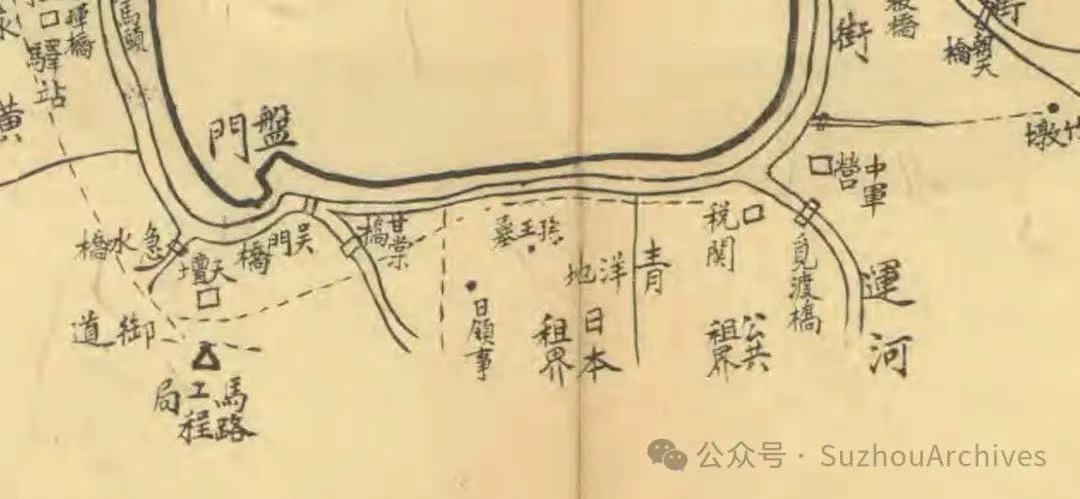 馬頭
驛站
黃
盤門
街
朝天橋
墩
中軍營
稅關
覓渡橋
運河
公共租界
青洋地
日本租界
日領事
孫王墓
甘棠橋
吳門橋
急水橋
天壇
御道
馬路工程局
公众号 · SuzhouArchives